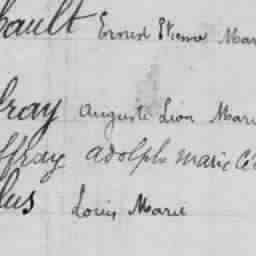 bault Ernest Etienne Mar
fray Auguste Léon Mari
ffray Adolphe Marie Cé
lus Louis Marie